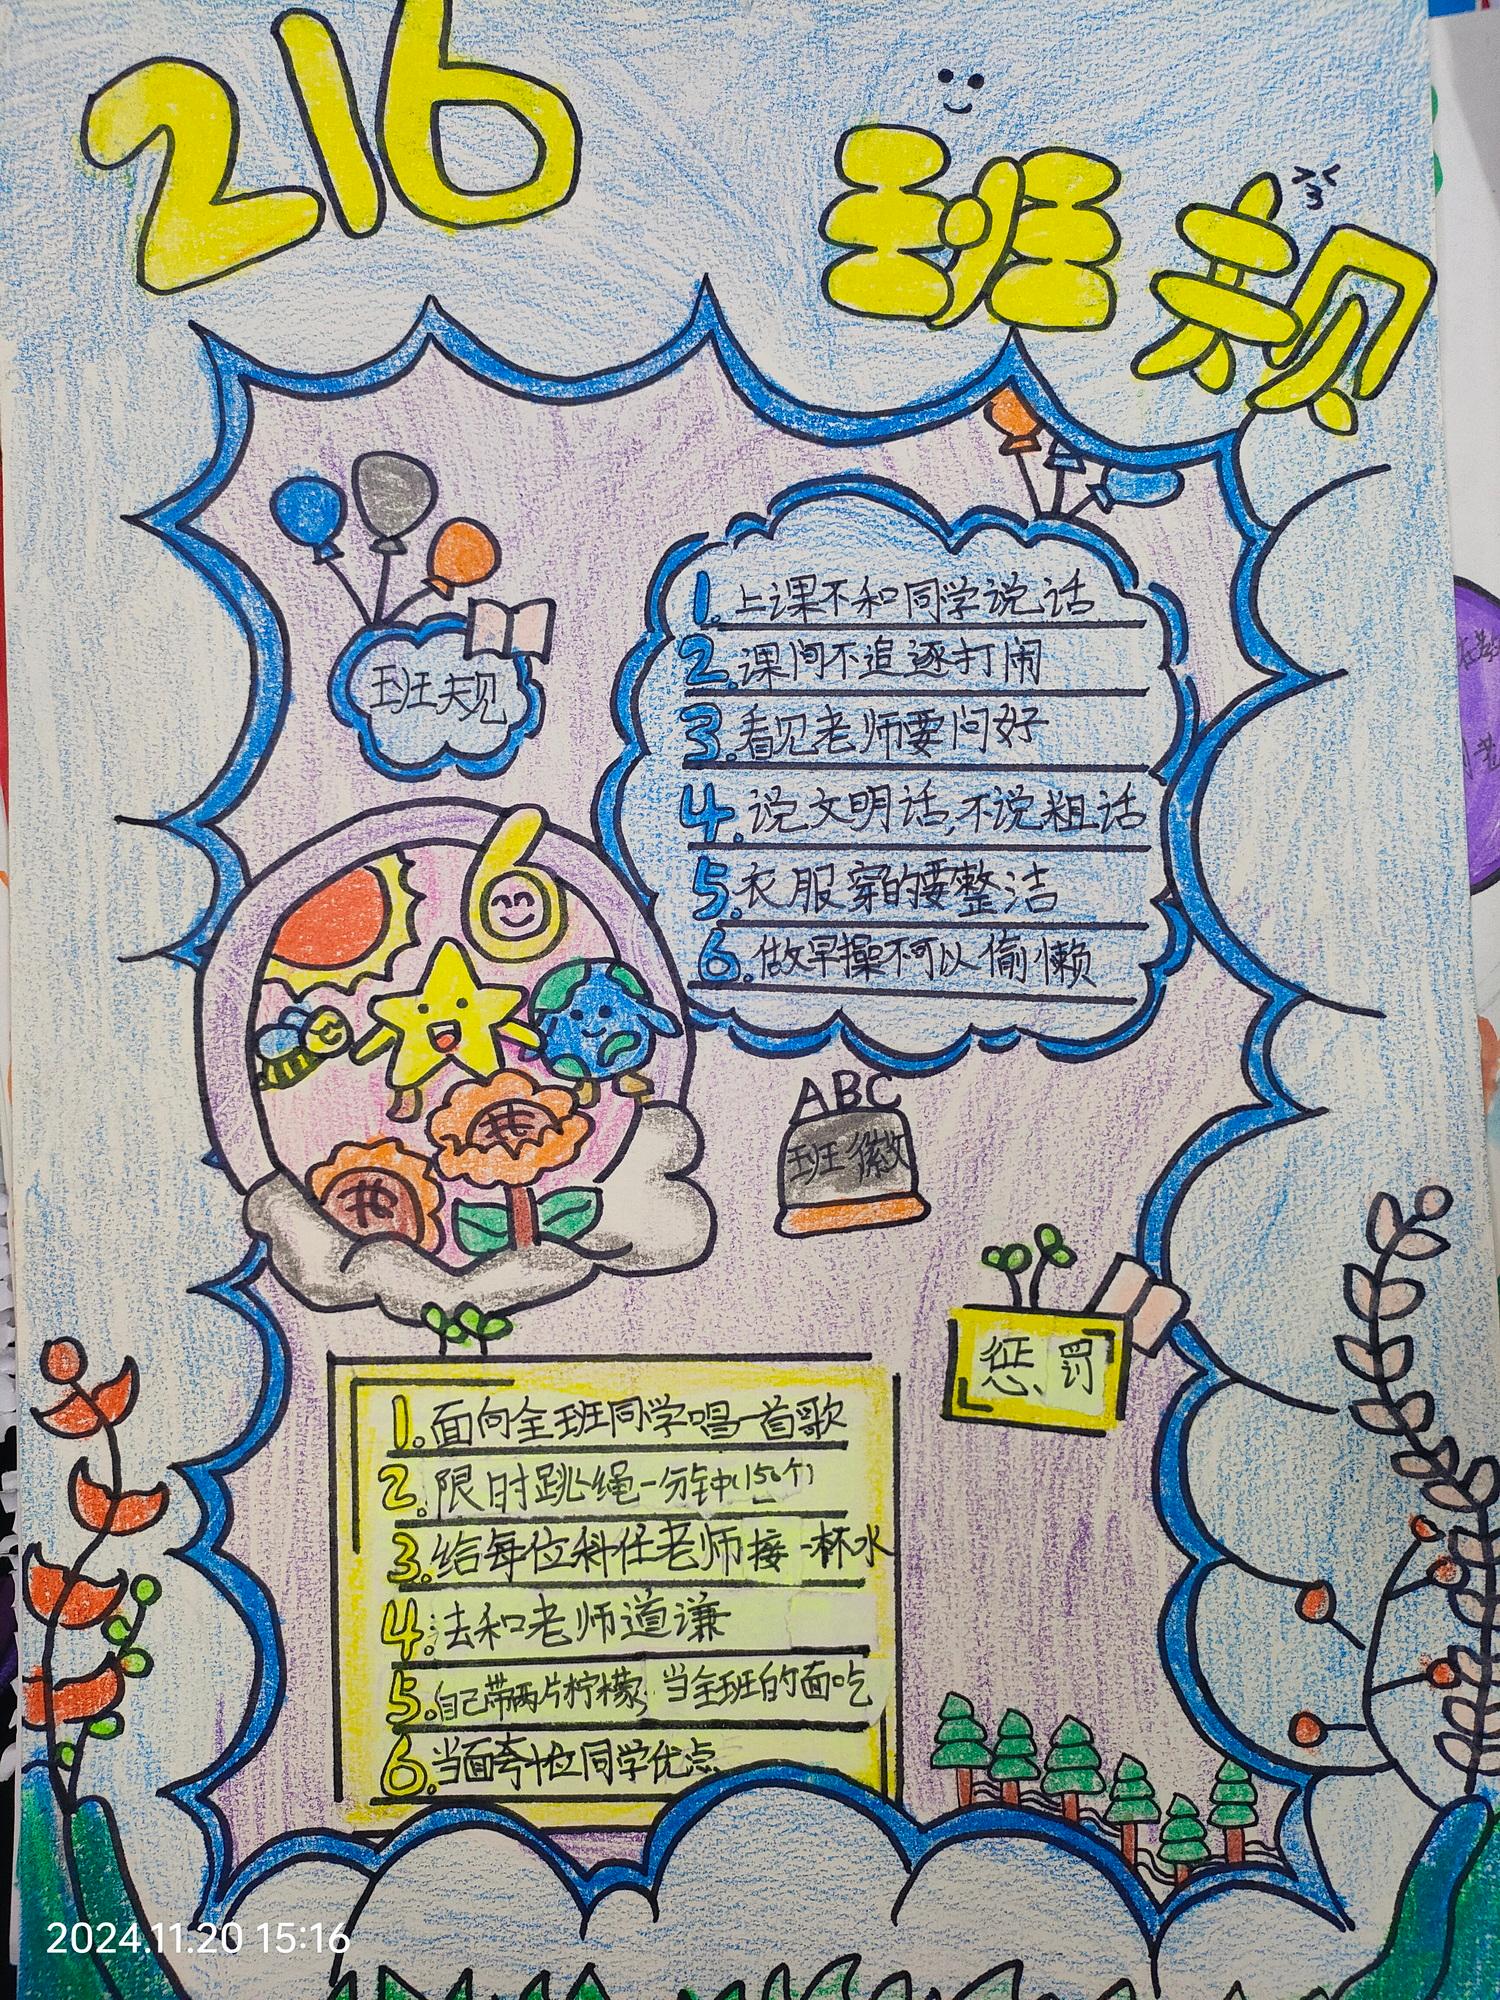 216
班规
班规
1.上课不和同学说话
2.课间不追逐打闹
3.看见老师要问好
4.说文明话,不说粗话
5.衣服穿的要整洁
6.做早操不可以偷懒
6
ABC
班徽
惩罚
1.面向全班同学唱一首歌
2.限时跳绳一分钟(150个)
3.给每位科任老师接一杯水
4.去和老师道谦
5.自己带两片柠檬 当全班的面吃
6.当面夸十位同学优点
2024.11.20 15:16